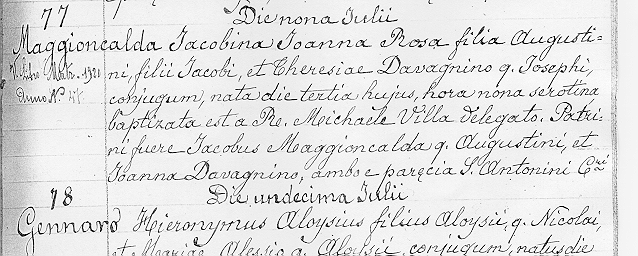 77
Die nona Julii
Maggioncalda Jacobina Joanna Rosa filia Augusti-
ni, filii Jacobi, et Theresiae Davagnino q. Josephi,
conjugum, nata die tertia hujus, hora nona serotina
baptizata est a Re. Michaele Villa delegato. Patri-
ni fuere Jacobus Maggioncalda q. Augustini, et
Joanna Davagnino, ambo e paręcia S. Antonini Cṛi
78
Die undecima Julii
Gennaro Hieronymus Aloysius filius Aloysii, q. Nicolai,
et Mariae Alessio q. Aloysii, conjugum, natus die